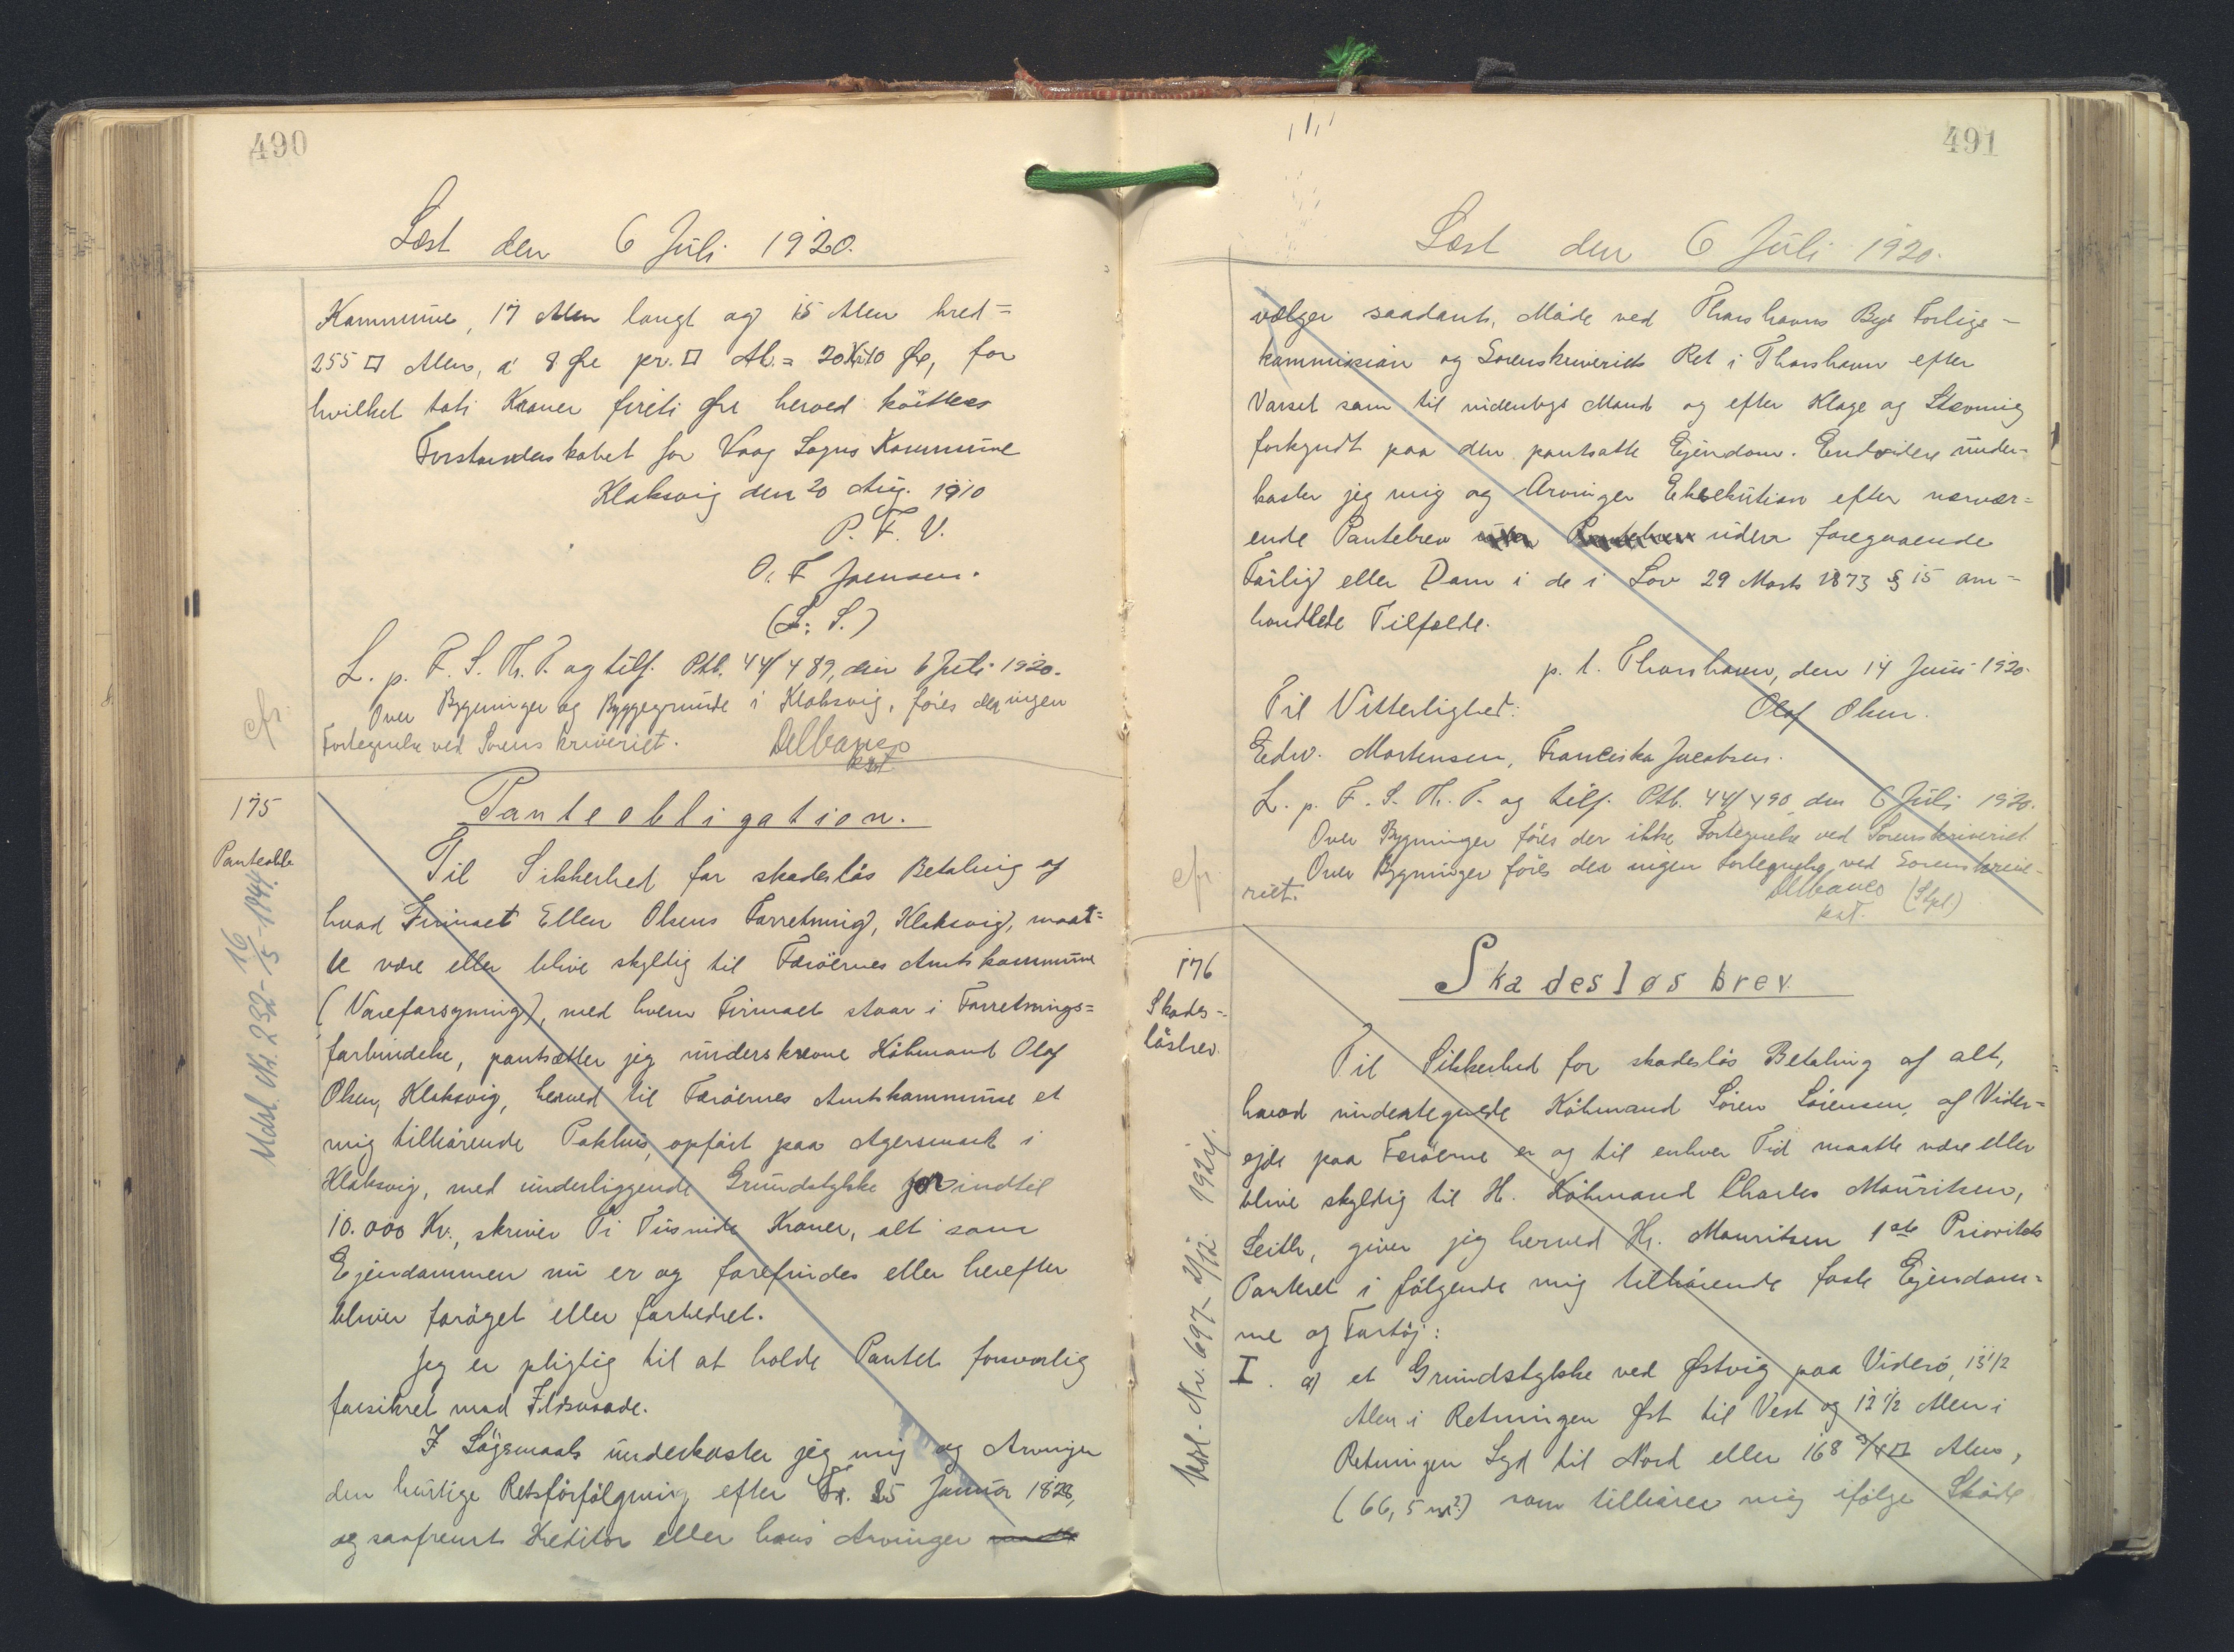 490
Læst den 6 Juli 1920.
Kommune, 17 Alen langt og 15 Alen bred =
255 □ Alen, à 8 Øre pr. □ Al. = 20 Kr 40 Øre, for
hvilket toti Kroner fireti Øre herved kvitteres
Forstanderskabet for Vaag Sogns Kommune
Klaksvig den 20 Aug. 1910
P. F. V.
O. F. Joensen.
(L. S.)
L. p. F. S. Th. T. og tilf. Ptb. 44/489, den 6 Juli 1920.
Over Bygninger og Byggegrunde i Klaksvig, føres der ingen
cfr.
Fortegnelse ved Sorenskriveriet. Delbanco
kst.
175
Panteobl.
Udsl. Nr. 232 - 16/5 - 1944
Panteobligation.
Til Sikkerhed for skadesløs Betaling af
hvad Firmaet Ellen Olsens Forretning, Klaksvig, maat=
te være eller blive skyldig til Færøernes Amtskommune
(Vareforsyning), med hvem Firmaet staar i Forretnings=
forbindelse, pantsætter jeg underskrevne Købmand Olaf
Olsen, Klaksvig, herved til Færøernes Amtskommune et
mig tilhørende Pakhus, opført paa Agersmark i
Klaksvig, med underliggende Grundstykke for indtil
10.000 Kr., skriver Ti Tusinde Kroner, alt som
Ejendommen nu er og forefindes eller herefter
bliver forøget eller forbedret.
Jeg er pligtig til at holde Pantet forsvarlig
forsikret mod Ildsvaade.
I Søgsmaals underkaster jeg mig og Arvinger
den hurtige Retsforfølgning efter Fr. 25 Januar 1828,
og saafremt Kreditor eller hans Arvinger
491
Læst den 6 Juli 1920.
vælger saadant, Møde ved Thorshavns Bys Forligs-
kommission og Sorenskriveriets Ret i Thorshavn efter
Varsel som til indenbys Mand og efter Klage og Stævning
forkyndt paa den pantsatte Ejendom. Endvidere under-
kaster jeg mig og Arvinger Eksekution efter nærvær=
ende Pantebrev uden foregaaende
Forlig eller Dom i de i Lov 29 Marts 1873 § 15 om=
handlede Tilfælde.
p. t. Thorshavn, den 14 Juni 1920.
Til Vitterlighed: Olaf Olsen.
Edw. Mortensen, Franciska Jacobsen.
L. p. F. S. Th. T. og tilf. Ptb. 44/490, den 6 Juli 1920.
Over Bygninger føres der ikke Fortegnelse ved Sorenskriveriet
Over Bygninger føres der ingen Fortegnelse ved Sorenskrive-
cfr.
riet. Delbanco (Stpl.)
kst.
176
Skades=
løsbrev.
Udsl. - Nr. 697 - 2/12. 1924.
Skadesløsbrev
Til Sikkerhed for skadesløs Betaling af alt,
hvad undertegnede Købmand Sören Sörensen, af Vider=
ejde paa Færøerne er og til enhver Tid maatte være eller
blive skyldig til H. Købmand Charles Mouritsen,
Leith, giver jeg herved Hr. Mouritsen 1ste Prioritets
Panteret i følgende mig tilhørende faste Ejendom=
me og Fartøj:
I. a) et Grundstykke ved Østvig paa Viderø, 13 1/2
Alen i Retningen Øst til Vest og 12 1/2 Alen i
Retningen Syd til Nord eller 168 3/4 □ Alen,
(66,5 m2) som tilhører mig ifølge Skøde